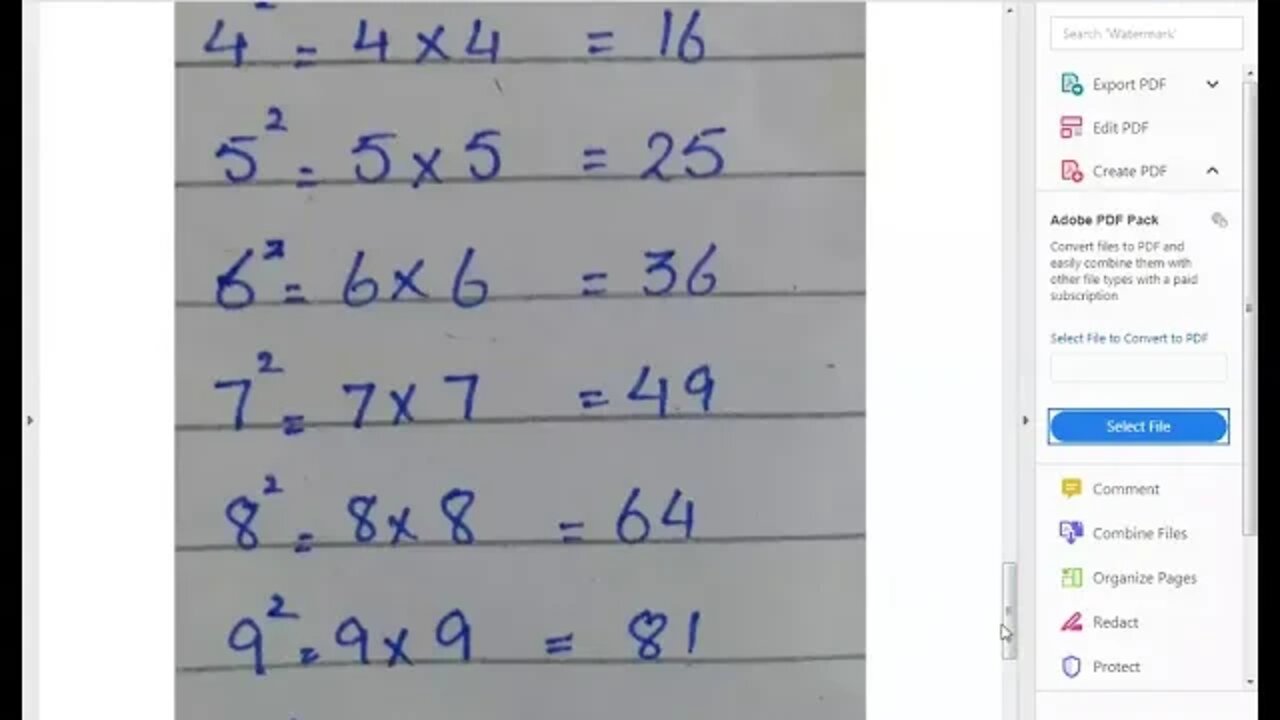 4² = 4 × 4 = 16
5² = 5 × 5 = 25
6² = 6 × 6 = 36
7² = 7 × 7 = 49
8² = 8 × 8 = 64
9² = 9 × 9 = 81
Search 'Watermark'
Export PDF
Edit PDF
Create PDF
Adobe PDF Pack
Convert files to PDF and
easily combine them with
other file types with a paid
subscription
Select File to Convert to PDF
Select File
Comment
Combine Files
Organize Pages
Redact
Protect